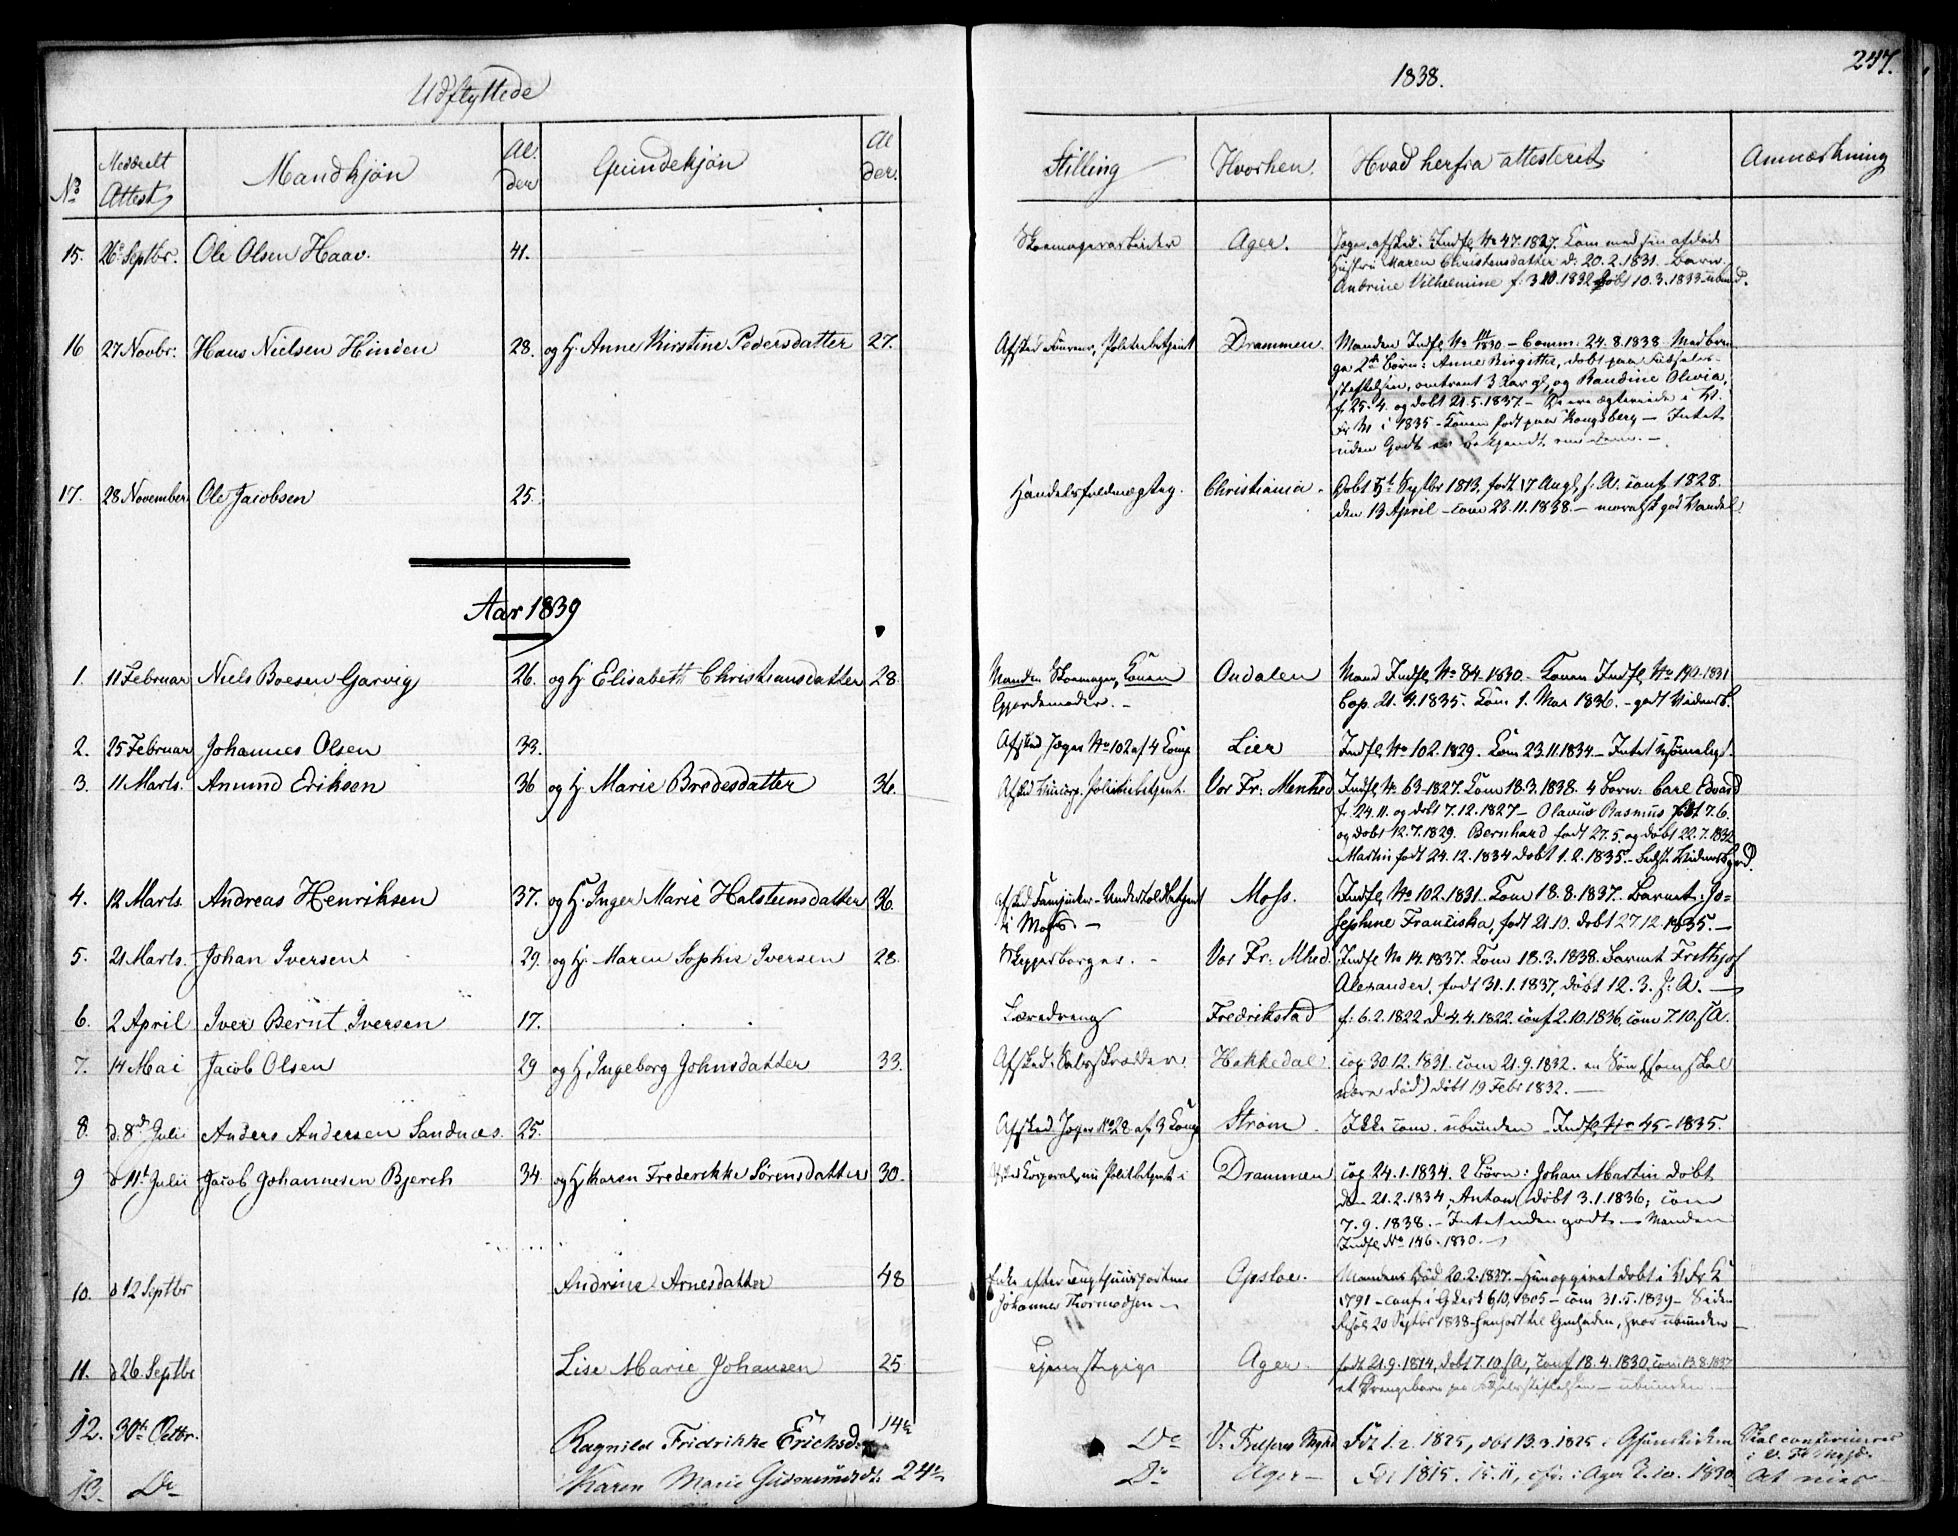 Udflyttede
1838.
247.
No Meddeelt Attest Mandkjøn Al der Qvindekjøn Al der. Stilling Hvorhen. Hvad herfra attesterit Anmærkning
15. 26. Septbr. Ole Olsen Haav. 41. Skomagerarbeider Ager. Jæger, afsked. Indfl. No 47. 1827. Com med sin afdøde
Hustru Maren Christensdatter d: 20.2.1831. Barn
Andrine Vilhelmine f. 3.10.1832 døbt 10.3.1833 - ubund.
16 27 Novbr: Hans Nielsen Hinden 28. og H. Anne Kirstine Pedersdatter 27. Drammen. Manden Indfl. No 11/1830 - Comm: 24.8.1838 Medbrin
ge 2de Børn: Anne Birgitte, døbt paa Fødsels-
stiftelsen, omtrent 3 Aar gl, og Randine Olivia,
f. 25.4. og døbt 21.5.1837. - De ere ægteviede i
i 1835 - Konen født paa Kongsberg - Intet
uden Godt er bekjendt om dem. -
17. 28 November Ole Jacobsen 25. Handelsfuldmægtig. Christiania. Døbt Septbr 1813, født 17 Augt s: A. conf 1828.
den 13 April - com 23.11.1838. - moralsk god Vandel.
Aar 1839
1. 11 Februar Niels Boesen Garvig 26. og H. Elisabeth Christiansdatter 28. Manden Skomager, Konen Oudalen Mand Indfl. No 84. 1830. - Konen Indfl. No 190. 1831
Gjordemoder. - Cop. 21.4.1835. Com 1. Mai 1836. - godt Vidnesb.
2. 25 Februar Johannes Olsen 33. Afsked Jæger No 102 af 4 Comp Lier Indfl. No 102. 1829. Com 23.11.1834 -
3. 11 Marts. Amund Eriksen 36 og H. Marie Bredesdatter 36. Vor Fr: Menhed Indfl. No 63. 1827. Com 18.3.1838. 4 Børn: Carl Edvard
f. 24.11. og døbt 7.12.1827 - Olavus Rasmus født 7.6.
og døbt 12.7.1829. Bernhard født 27.5. og døbt 22.7.1832
Martin født 24.12.1834 døbt 1.2.1835. -
4. 12 Marts. Andreas Henriksen 37. og H. Inger Marie Halsteinsdatter 36. Moss. Indfl. No 102. 1831. Com 18.8.1837. Barnet: Jo-
i Moss. - sephine Franciska, født 21.10. døbt 27.12.1835. -
5. 21 Marts. Johan Iversen 29. og H. Maren Sophie Iversen 28. Skipperborger. - Vor Fr: Mhed. Indfl. No 14. 1837. Com 18.3.1838. Barnet Frithjof
Alexander, født 31.1.1837, døbt 12.3. s: A. -
6. 2 April Iver Bernt Iversen 17. Læredreng Fredrikstad f: 6.2.1822 d 4.4.1822. conf 2.10.1836, com 7.10. s A.
7. 14 Mai Jacob Olsen 29 og H. Ingeborg Johnsdatter 33. Hakkedal. cop 30.12.1831. com 21.9.1832. en Søn (som skal
være død) døbt 19 Febr 1832. -
8. d. 8de Juli Anders Andersen Sandnæs. 25. Afsked Jæger No 28 af 3 Comp Strøm Ikke com. ubunden Indfl. No 45 - 1835.
9 d 11t Julii Jacob Johannesen Bjerch 34 og H. Karen Frederikke Sørensdatter 30. Drammen cop 24.1.1834. 2 Børn: Johan Martin døbt
den 21.2.1834, Anton døbt 3.1.1836, com
7.9.1838. - Intet uden godt - Manden
Indfl. No 146. 1830. -
10. d 12 Septbr Andrine Arnesdatter 48 Enke efter Opsloe. Mandens Død 20.2.1837. Hun opgivet døbt i
Johannes Thormodsen - 1791 - conf. i 6.10.1805 - com 31.5.1839 - Siden
20 Septbr 1838 ubunden
11. d 26 Septbr Lise Marie Johansen 25 Tjenestepige Ager. født 21.9.1814, døbt 7.10 s A, conf 18.4.1830, com 13.8.1837
et Drengebarn paa Fødselsstiftelsen - ubunden
12. 30te Octbr. Ragnild Fridrikke Erichsd. 14½ Do Fød 1.2.1825, døbt 13.3.1825 i Skal confirmeres
13. Do Karen Marie Gudmundsdt. 24½ Do Ager - Fød 1815. 15.11, i Ager 3.10.1830.